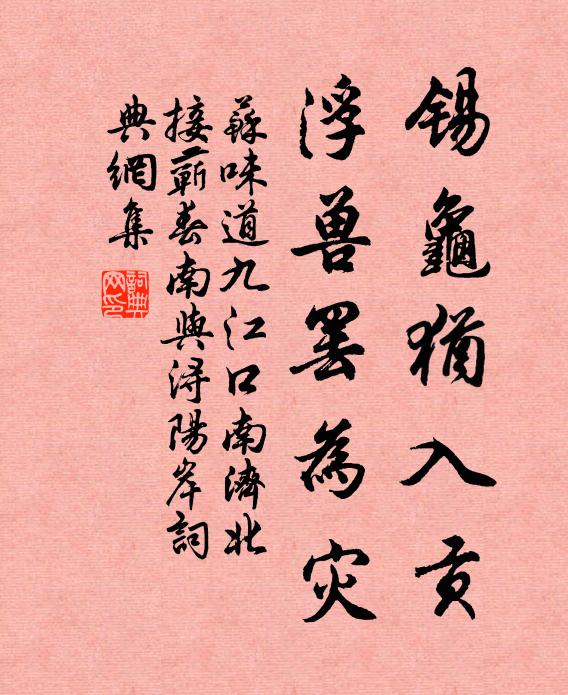 錫龜猶入貢
浮兽罢為灾
蘇味道九江口南濟北
接蘄春南與浔陽岸詞
典網集
詞典网印